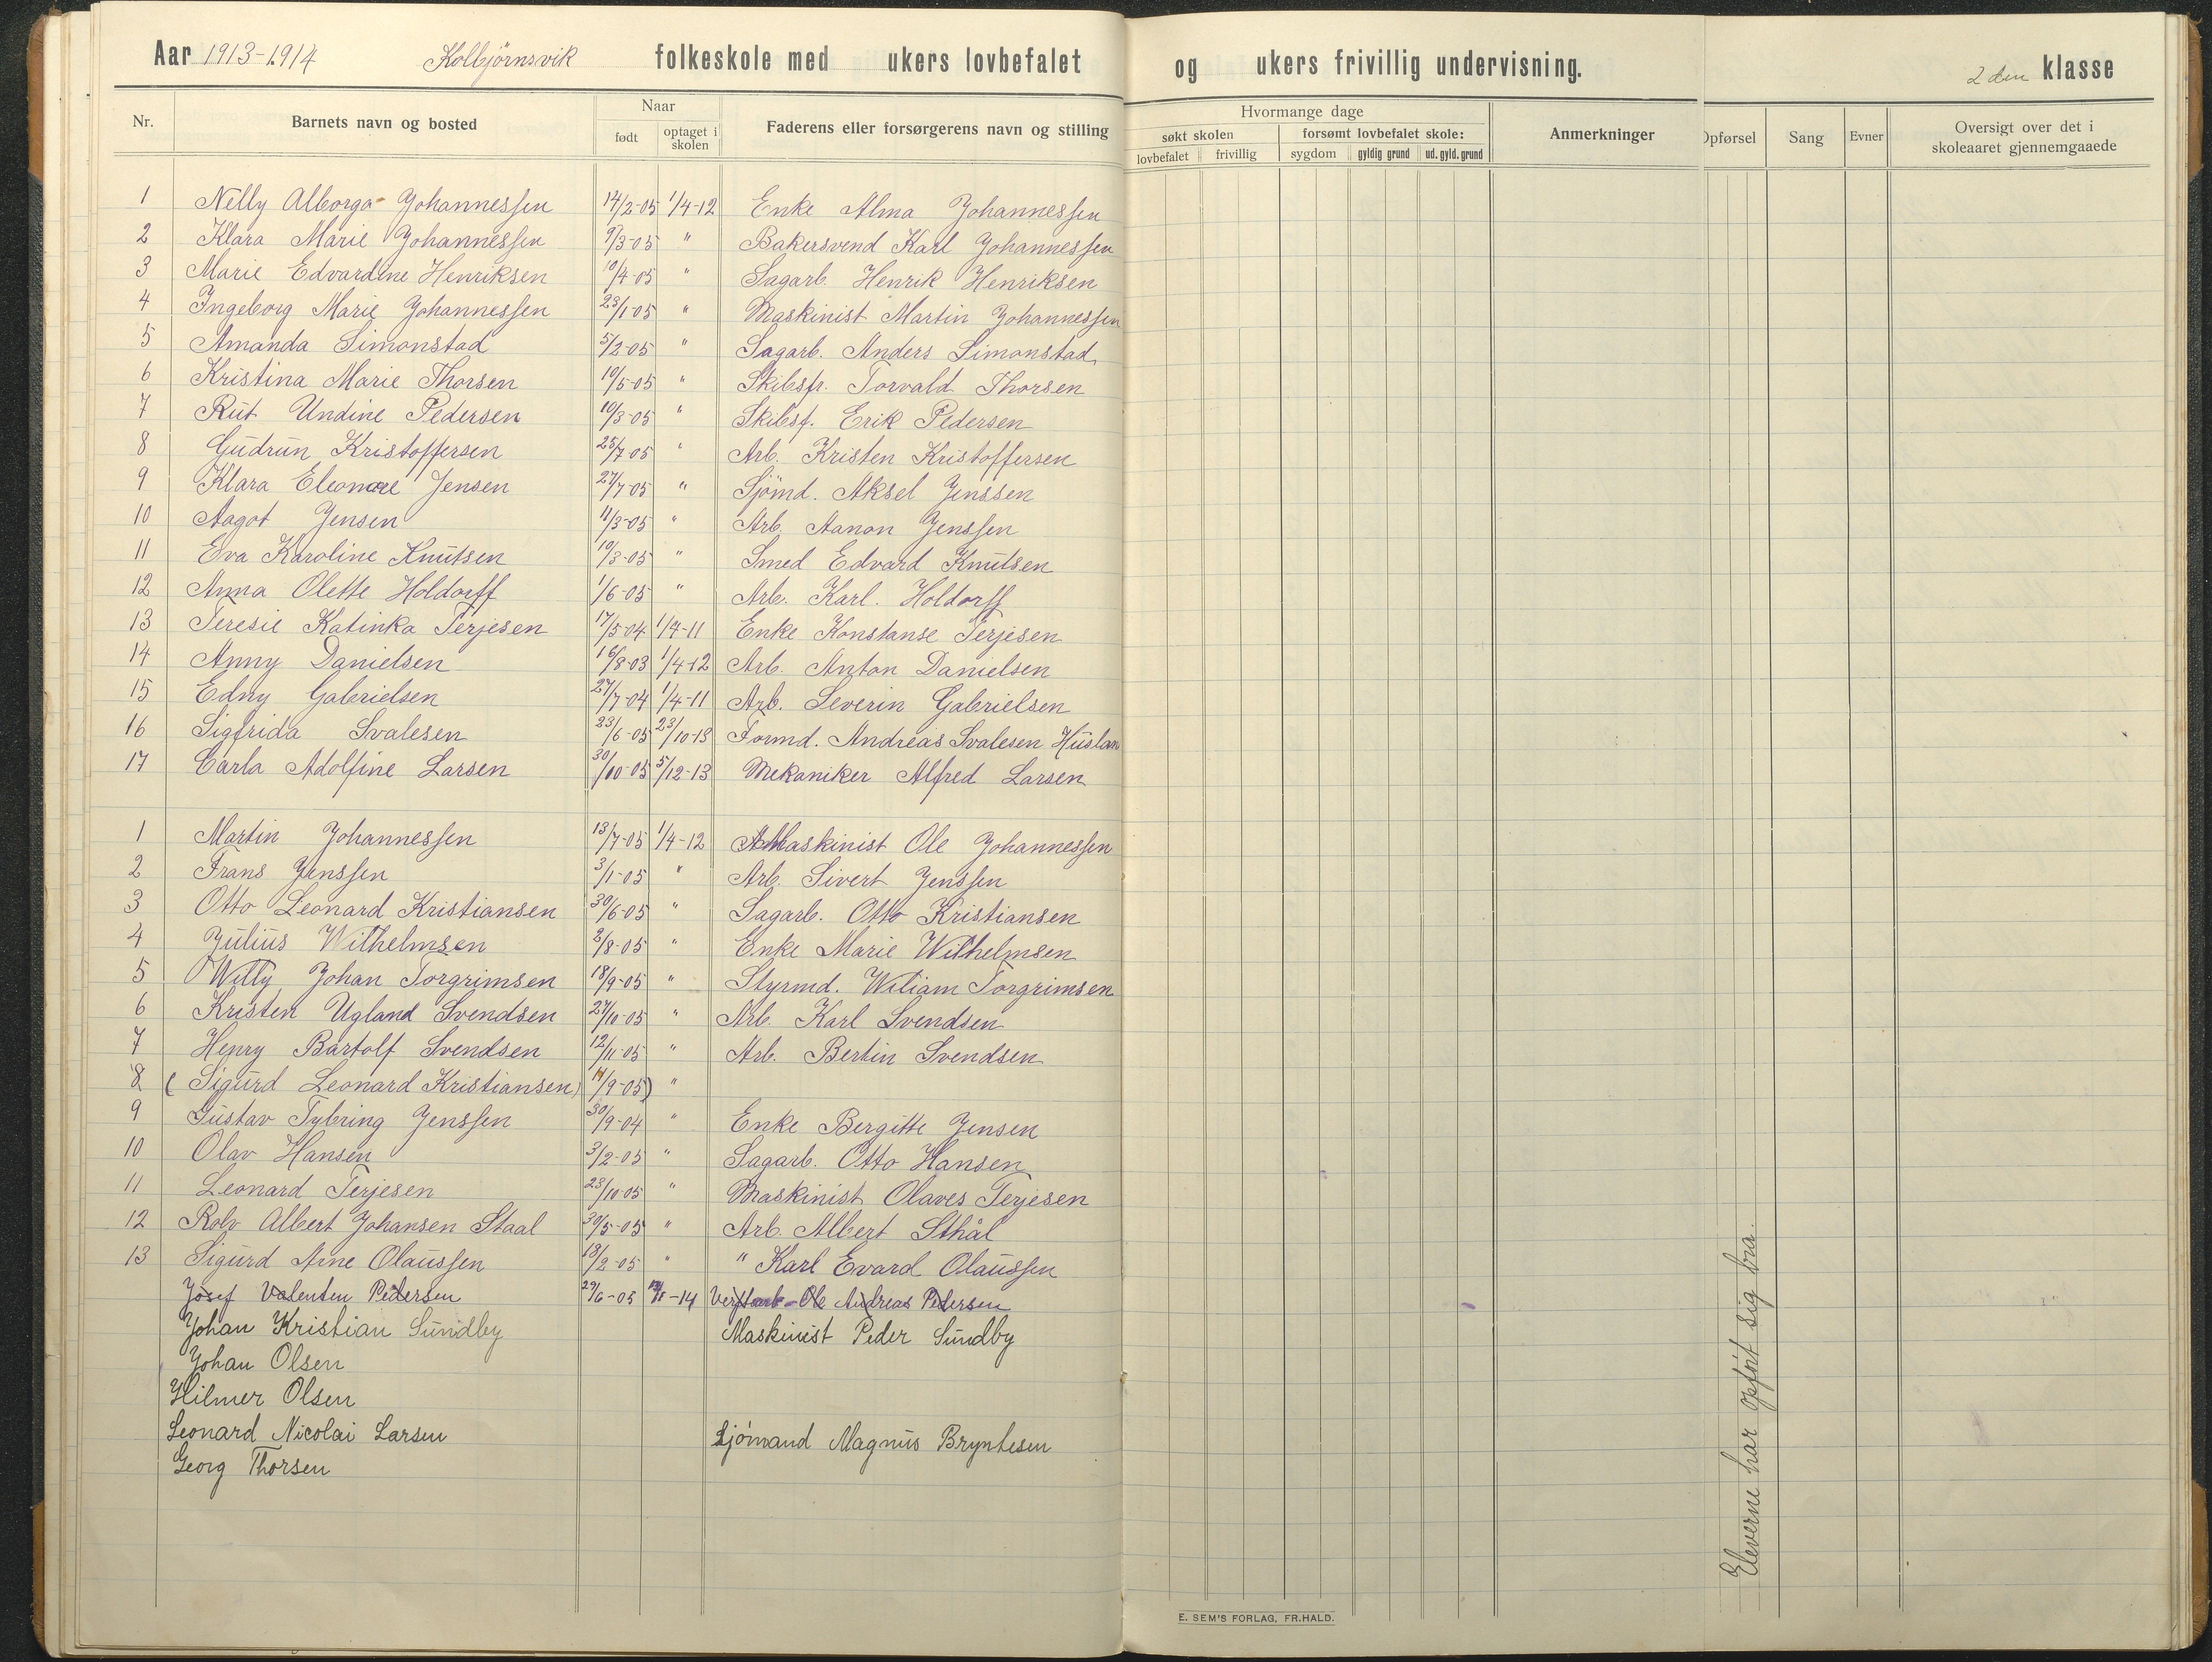 Aar 1913-1914 Kolbjörnsvik folkeskole med ukers lovbefalet og ukers frivillig undervisning. 2den klasse
Nr. Barnets navn og bosted Naar født optaget i skolen Faderens eller forsørgerens navn og stilling Hvormange dage søkt skolen lovbefalet frivillig forsømt lovbefalet skole: sygdom gyldig grund ud. gyld. grund Anmerkninger Opførsel Sang Evner Oversigt over det i skoleaaret gjennemgaaede
1 Nelly Alborga Johannessen 14/2-05 1/4-12 Enke Alma Johannessen
2 Klara Marie Johannessen 9/3-05 " Bakersvend Karl Johannessen
3 Marie Edvardine Henriksen 10/4-05 " Sagarb. Henrik Henriksen
4 Ingeborg Marie Johannessen 23/1-05 " Maskinist Martin Johannessen
5 Amanda Simonstad 5/2-05 " Sagarb. Anders Simonstad
6 Kristina Marie Thorsen 10/5-05 " Skibsfr. Torvald Thorsen
7 Rut Undine Pedersen 10/3-05 " Skibsf. Erik Pedersen
8 Gudrun Kristoffersen 25/7-05 " Arb. Kristen Kristoffersen
9 Klara Eleonore Jensen 27/7-05 " Sjömd. Aksel Jenssen
10 Aagot Jensen 11/3-05 " Arb. Aanon Jenssen
11 Eva Karoline Knutsen 10/3-05 " Smed Edvard Knutsen
12 Anna Olette Holdorff 1/6-05 " Arb. Karl. Holdorff
13 Teresie Katinka Terjesen 17/5-04 1/4-11 Enke Konstanse Terjesen
14 Anny Danielsen 16/8-03 1/4-12 Arb. Anton Danielsen
15 Edny Gabrielsen 27/7-04 1/4-11 Arb. Severin Gabrielsen
16 Sigfrida Svalesen 23/6-05 23/10-13 Formd. Andreas Svalesen
17 Carla Adolfine Larsen 30/10-05 5/12-13 Mekaniker Alfred Larsen
1 Martin Johannessen 13/7-05 1/4-12 Maskinist Ole Johannessen
2 Frans Jenssen 3/1-05 " Arb. Sivert Jenssen
3 Otto Leonard Kristiansen 30/6-05 " Sagarb. Otto Kristiansen
4 Julius Wilhelmsen 2/8-05 " Enke Marie Wilhelmsen
5 Willy Johan Torgrimsen 18/9-05 " Styrmd. Wiliam Torgrimsen
6 Kristen Ugland Svendsen 27/10-05 " Arb. Karl Svendsen
7 Henry Bartolf Svendsen 12/11-05 " Arb. Bertin Svendsen
8 (Sigurd Leonard Kristiansen) 11/9-05) "
9 Gustav Tybring Jenssen 30/9-04 " Enke Bergitte Jensen
10 Olav Hansen 3/2-05 " Sagarb. Otto Hansen
11 Leonard Terjesen 23/10-05 " Maskinist Olaves Terjesen
12 Rolv Albert Johansen Staal 30/5-05 " Arb. Albert Sthål
13 Sigurd Arne Olaussen 18/2-05 " " Karl Evard Olaussen
Josef Valenten Pedersen 29/6-05 Ole Andreas Pedersen
Johan Kristian Sundby Maskinist Peder Sundby
Johan Olsen
Hilmer Olsen
Leonard Nicolai Larsen Sjömand Magnus Bryntesen
Georg Thorsen
Eleverne har opført sig bra.
E. SEM'S FORLAG, FR.HALD.